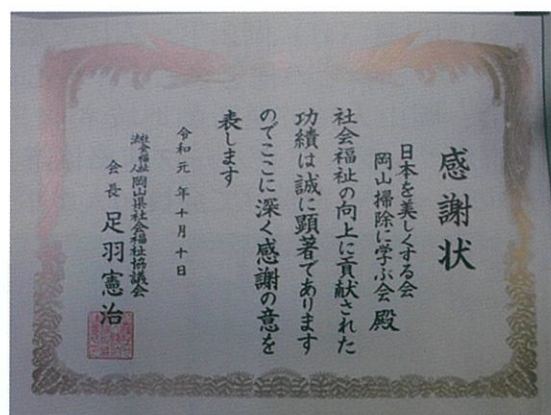 感謝状
日本を美しくする会
岡山掃除に学ぶ会 殿
社会福祉の向上に貢献された
功績は誠に顕著であります
のでここに深く感謝の意を
表します
令和元年十月十日
社会福祉法人 岡山県社会福祉協議会
会長 足羽憲治